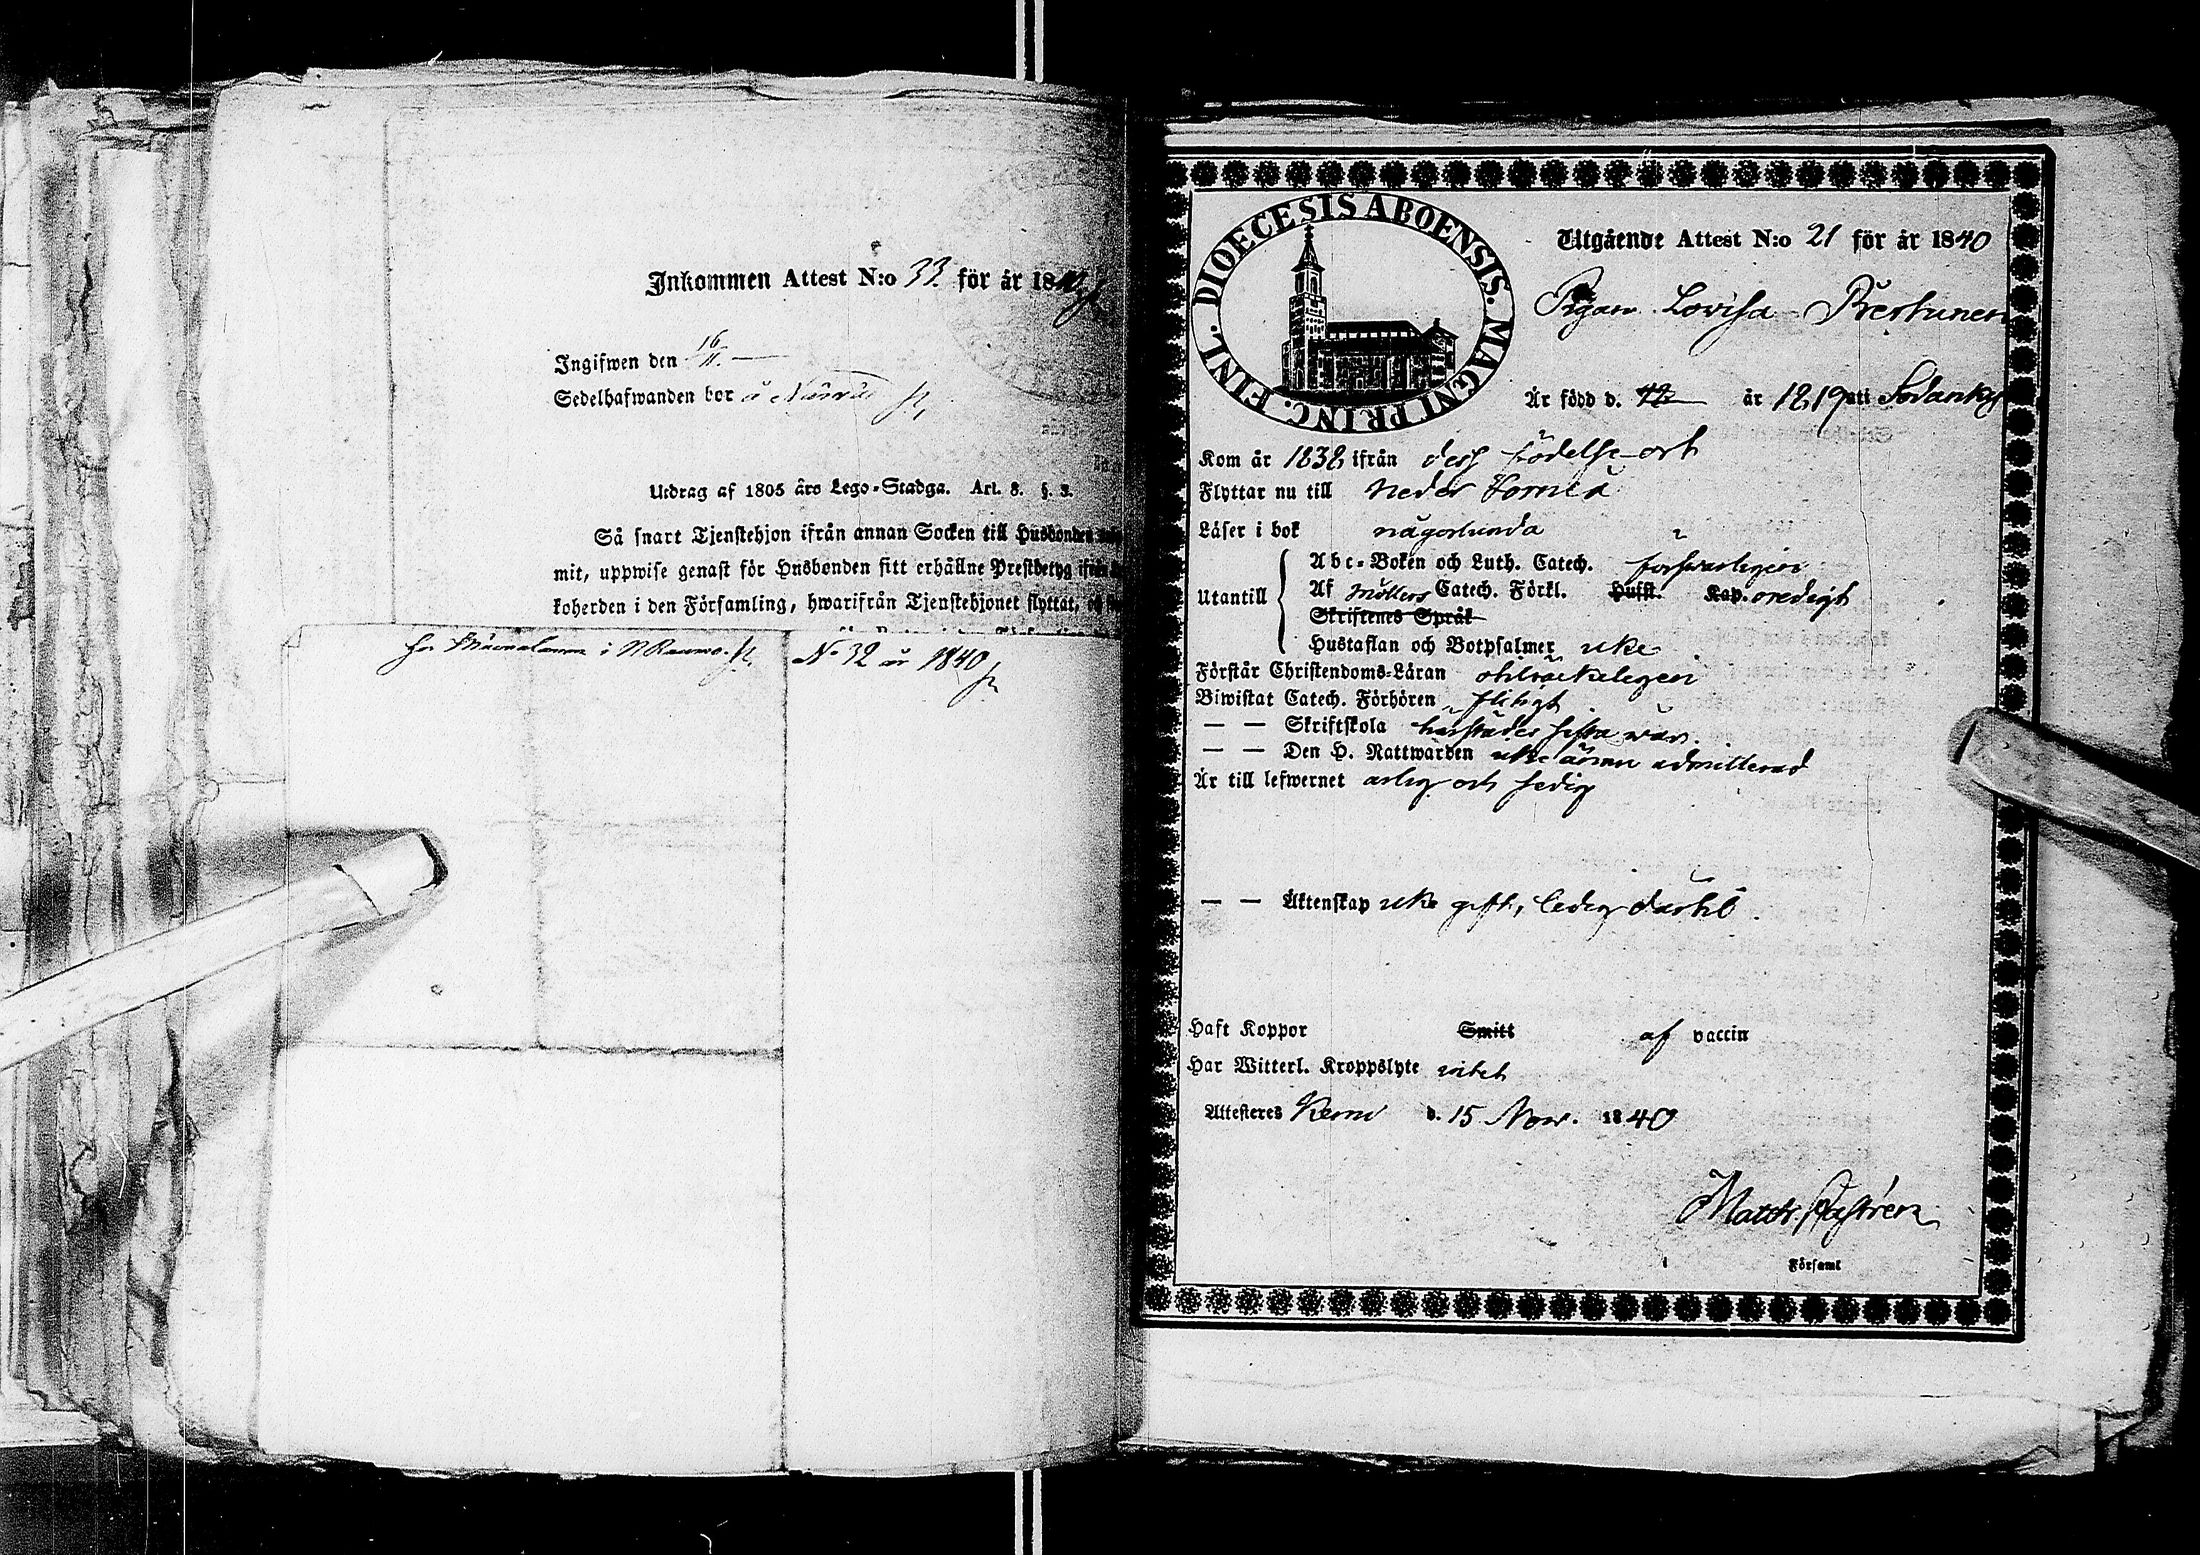 Inkommen Attest N:o 33. för år 1840
Ingifwen den 16/11.
Sedelhafwanden bor å
Utdrag af 1805 års Lego-Stadga. Art. 8. §. 3.
Så snart Tjenstehjon ifrån annan Socken till Husbonden
mit, uppwise genast för Husbonden sitt erhållne Prestbetyg ifrån
koherden i den Församling, hwarifrån Tjenstehjonet flyttat,
i N Raumo.
No 32 år 1840
DIOECESIS ABOENSIS. MAGNI PRINC. FINL.
Utgående Attest N:o 21 för år 1840
Pigan Lovisa
Är född d. år 1819 uti Sodankylä
Kom år 1838 ifrån dess födelse-ort
Flyttar nu till Neder Torneå
Läser i bok någorlunda
Utantill
Abc-Boken och Luth. Catech. förswarligen
Af Möllers Catech. Förkl. Hufst. Kap. oredigt
Skriftenes Språk
Hustaflan och Botpsalmer icke
Förstår Christendoms-Läran otilräckeligen
Biwistat Catech. Förhören flitigt
— — Skriftskola härstädes sista wår.
— — Den H. Nattwarden icke ännu admitterad
Är till lefwernet ärlig och sedig
— — Äktenskap icke gift, ledig därtil.
Haft Koppor Smitt af vaccin
Har Witterl. Kroppslyte intet
Attesteres Kemi d. 15 Nov. 1840
Matth. Castrén
Församl